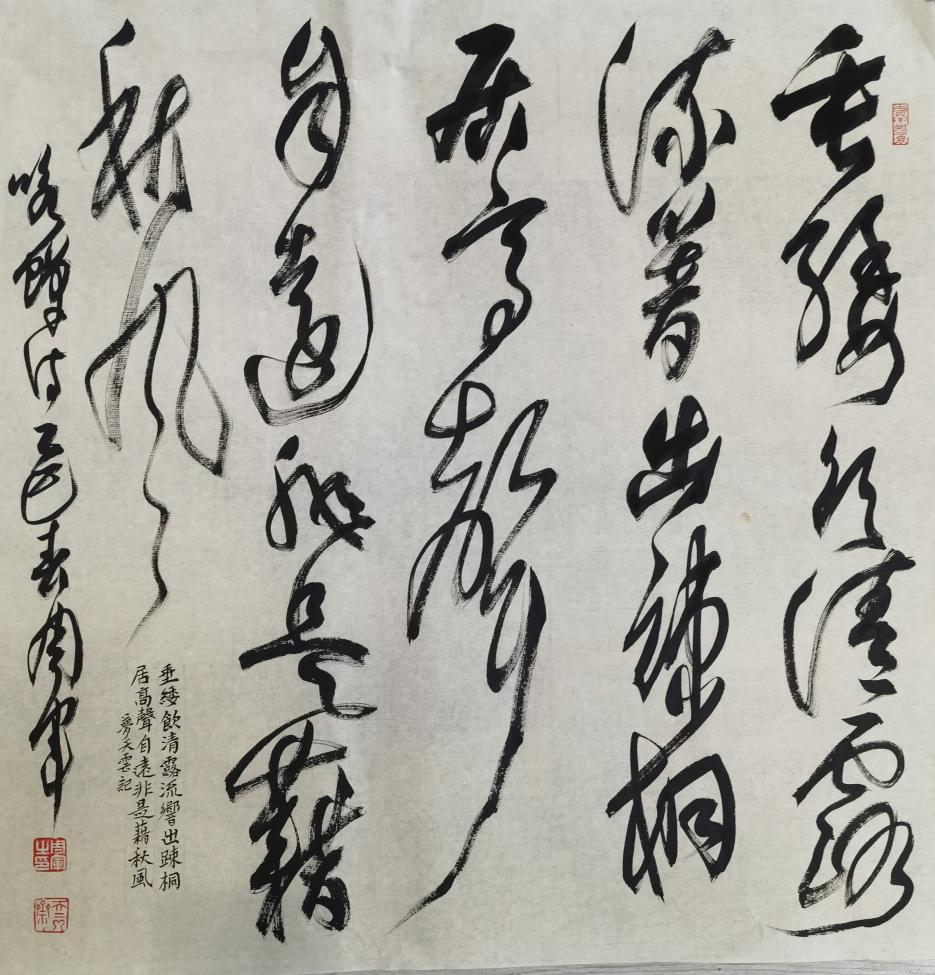 垂緌飲清露
流響出疎桐
居高聲
自遠非是藉
秋風
詠蟬诗乙巳春周军
垂緌飲清露流響出踈桐
居高聲自遠非是藉秋風
夢天雲記